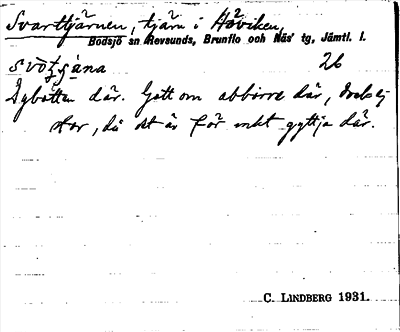 Svarttjärnen, tjärn i Håviken,
Bodsjö sn Revsunds, Brunflo och Näs' tg, Jämtl. l.
26
Dybotten där. Gott om abborre där,
stor, då det är för mkt gyttja där.
C. LINDBERG 1931.